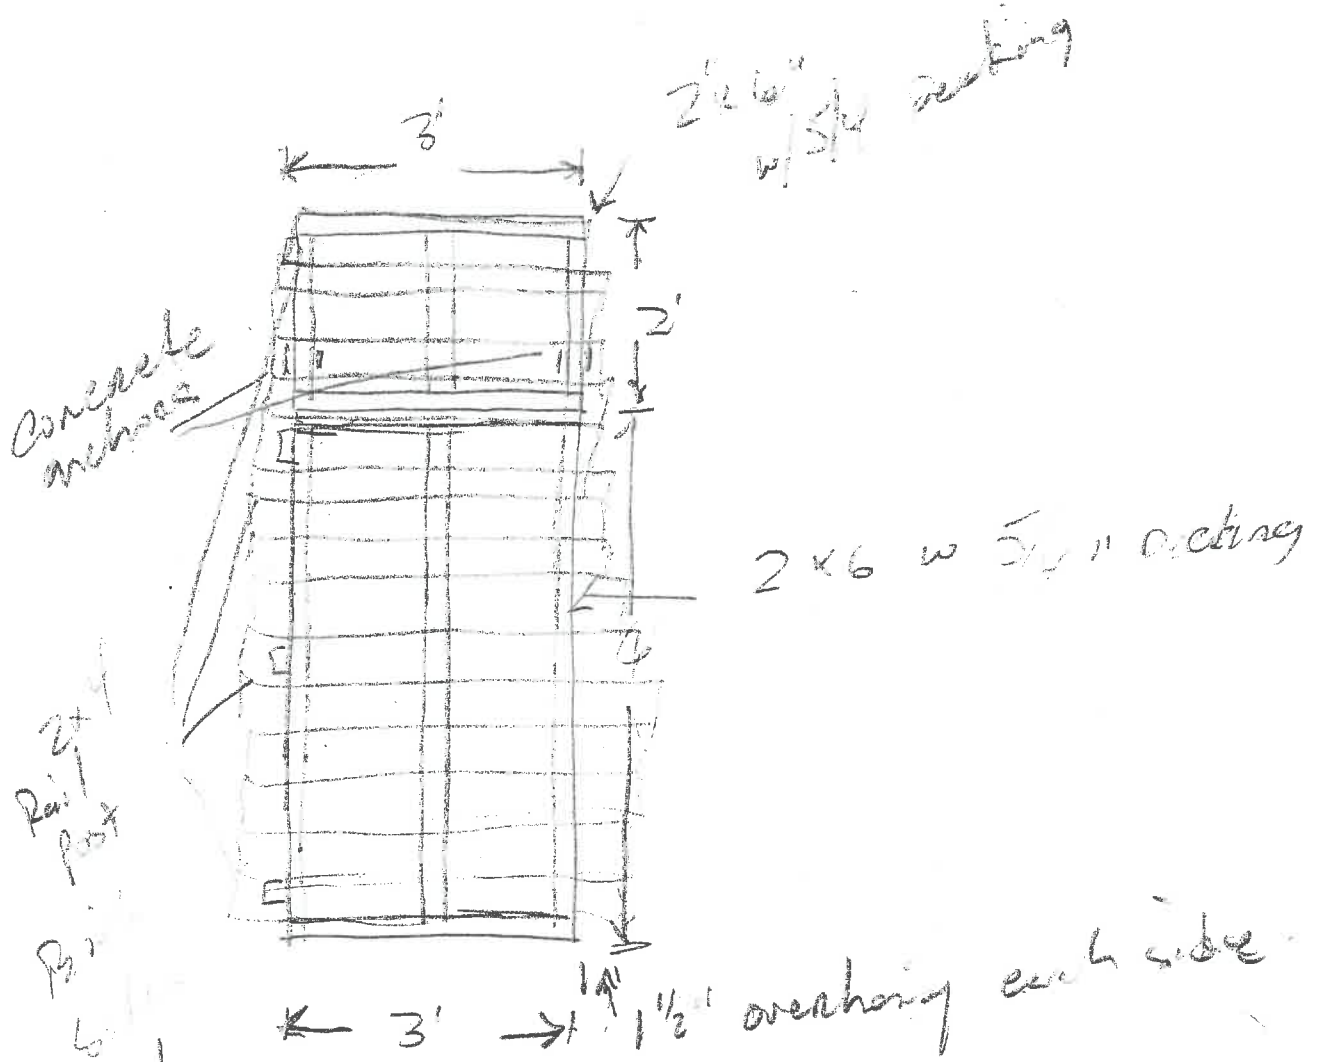 2'x6"
w/ 5/4 decking
3'
2'
Concrete
anchors
2 x 6 w 5/4" decking
2x4
Rail
post
3'
1 1/2' overhang each side